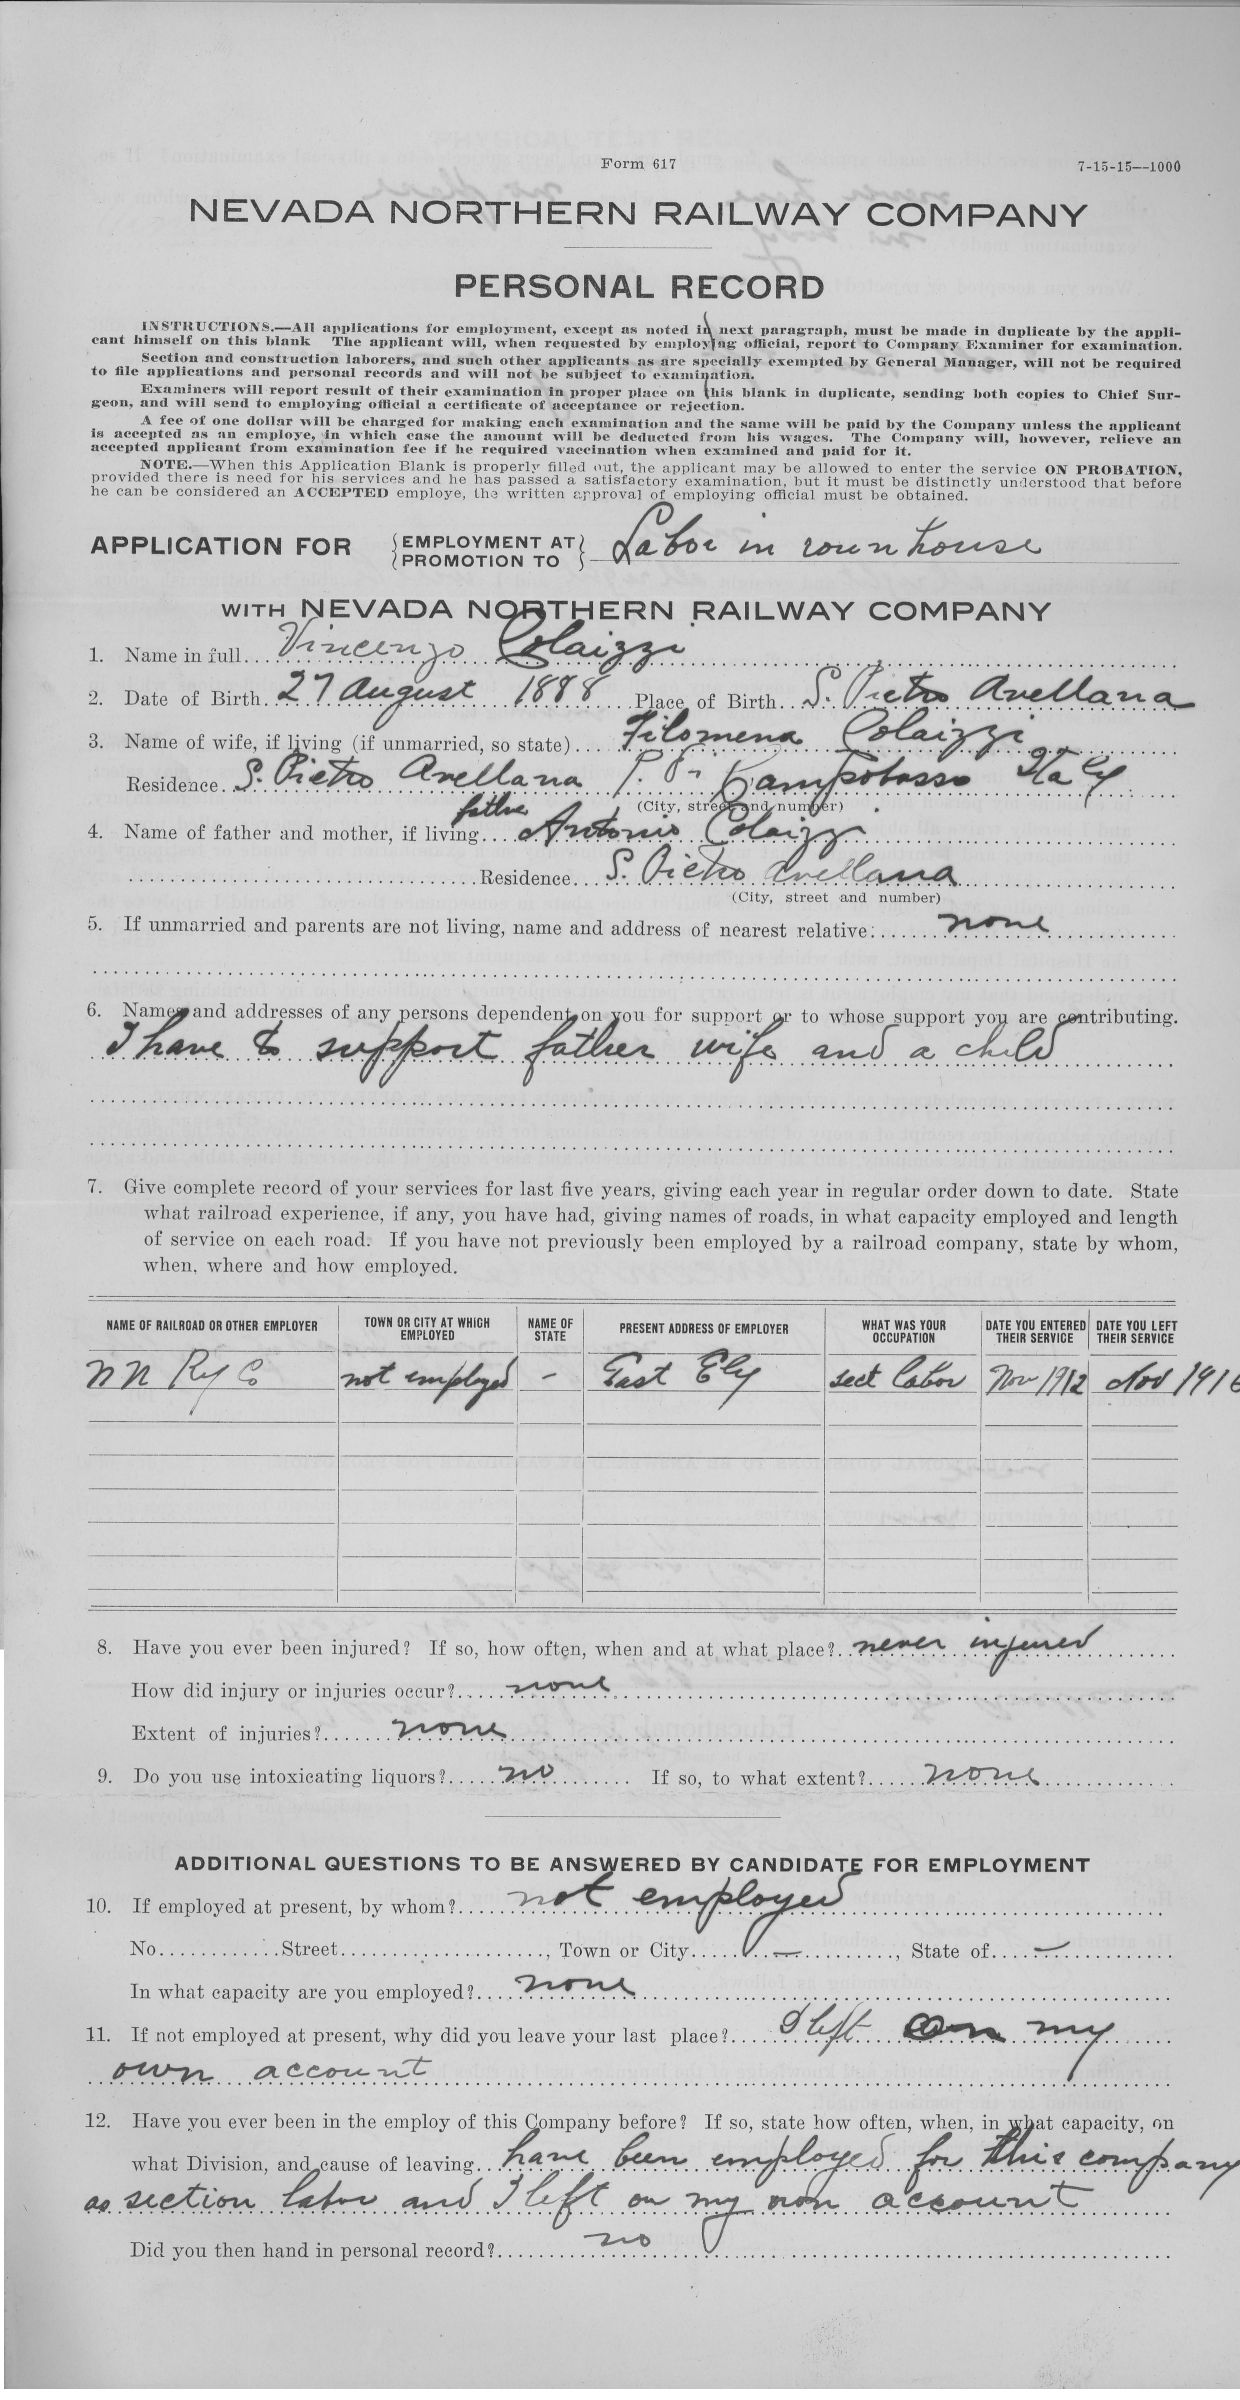 Form 617
7-15-15—1000
NEVADA NORTHERN RAILWAY COMPANY
PERSONAL RECORD
INSTRUCTIONS.—All applications for employment, except as noted in next paragraph, must be made in duplicate by the appli-
cant himself on this blank The applicant will, when requested by employing official, report to Company Examiner for examination.
Section and construction laborers, and such other applicants as are specially exempted by General Manager, will not be required
to file applications and personal records and will not be subject to examination.
Examiners will report result of their examination in proper place on this blank in duplicate, sending both copies to Chief Sur-
geon, and will send to employing official a certificate of acceptance or rejection.
A fee of one dollar will be charged for making each examination and the same will be paid by the Company unless the applicant
is accepted as an employe, in which case the amount will be deducted from his wages. The Company will, however, relieve an
accepted applicant from examination fee if he required vaccination when examined and paid for it.
NOTE.—When this Application Blank is properly filled out, the applicant may be allowed to enter the service ON PROBATION,
provided there is need for his services and he has passed a satisfactory examination, but it must be distinctly understood that before
he can be considered an ACCEPTED employe, the written approval of employing official must be obtained.
APPLICATION FOR {EMPLOYMENT AT} Labor in rounhouse
{PROMOTION TO}
WITH NEVADA NORTHERN RAILWAY COMPANY
1. Name in full Vincenzo Colaizzi
2. Date of Birth 27 August 1888 Place of Birth S. Pietro Avellana
3. Name of wife, if living (if unmarried, so state) Filomena Colaizzi
Residence S. Pietro Avellana Campobasso Italy
(City, street and number)
4. Name of father and mother, if living father Antonio Colaizzi
Residence S. Pietro Avellana
(City, street and number)
5. If unmarried and parents are not living, name and address of nearest relative: none
6. Names and addresses of any persons dependent on you for support or to whose support you are contributing.
I have to support father wife and a child
7. Give complete record of your services for last five years, giving each year in regular order down to date. State
what railroad experience, if any, you have had, giving names of roads, in what capacity employed and length
of service on each road. If you have not previously been employed by a railroad company, state by whom,
when, where and how employed.
NAME OF RAILROAD OR OTHER EMPLOYER TOWN OR CITY AT WHICH EMPLOYED NAME OF STATE PRESENT ADDRESS OF EMPLOYER WHAT WAS YOUR OCCUPATION DATE YOU ENTERED THEIR SERVICE DATE YOU LEFT THEIR SERVICE
N N Ry Co not employed – East Ely sect labor Nov 1912 Nov 1916
8. Have you ever been injured? If so, how often, when and at what place? never injured
How did injury or injuries occur? none
Extent of injuries? none
9. Do you use intoxicating liquors? no If so, to what extent? none
ADDITIONAL QUESTIONS TO BE ANSWERED BY CANDIDATE FOR EMPLOYMENT
10. If employed at present, by whom? not employed
No. Street , Town or City – , State of –
In what capacity are you employed? none
11. If not employed at present, why did you leave your last place? I left on my
own account
12. Have you ever been in the employ of this Company before? If so, state how often, when, in what capacity, on
what Division, and cause of leaving have been employed for this company
as section labor and I left on my own account
Did you then hand in personal record? no